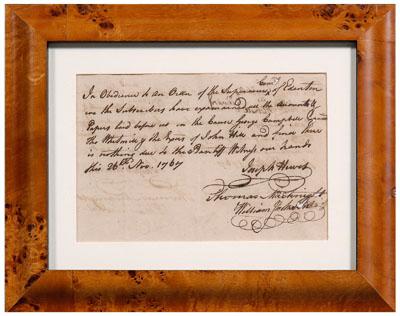 In Obedience to an Order of the Superiour Court of Edenton
we the Subscribers have examined all the accounts &
Papers laid before us in the Cause George Campbell
the Heirs of John and find there
is nothing due to the Plantiff Witness our hands
this 26th Nov. 1767
Joseph Hewes
Thomas Macknight
William